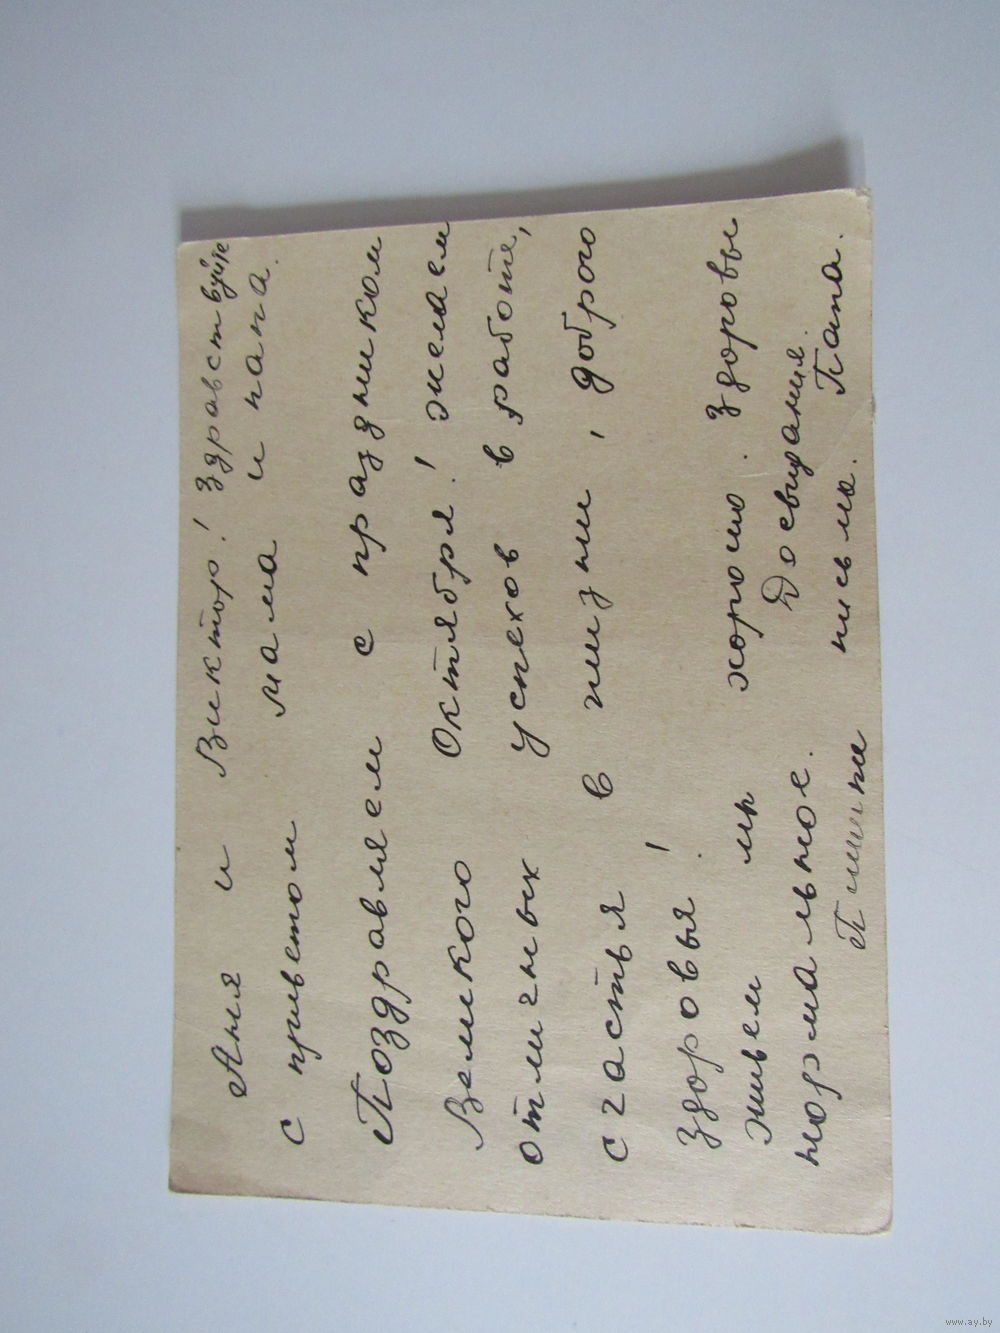 Аня и Виктор! Здравствуйте
с приветом мама и папа.
Поздравляем с праздником
Великого Октября! желаем
отличных успехов в работе,
счастья в жизни, доброго
здоровья!
живем мы хорошо. Здоровы
нормальное. Досвидания.
Пишти письма. Папа.
www.ay.by